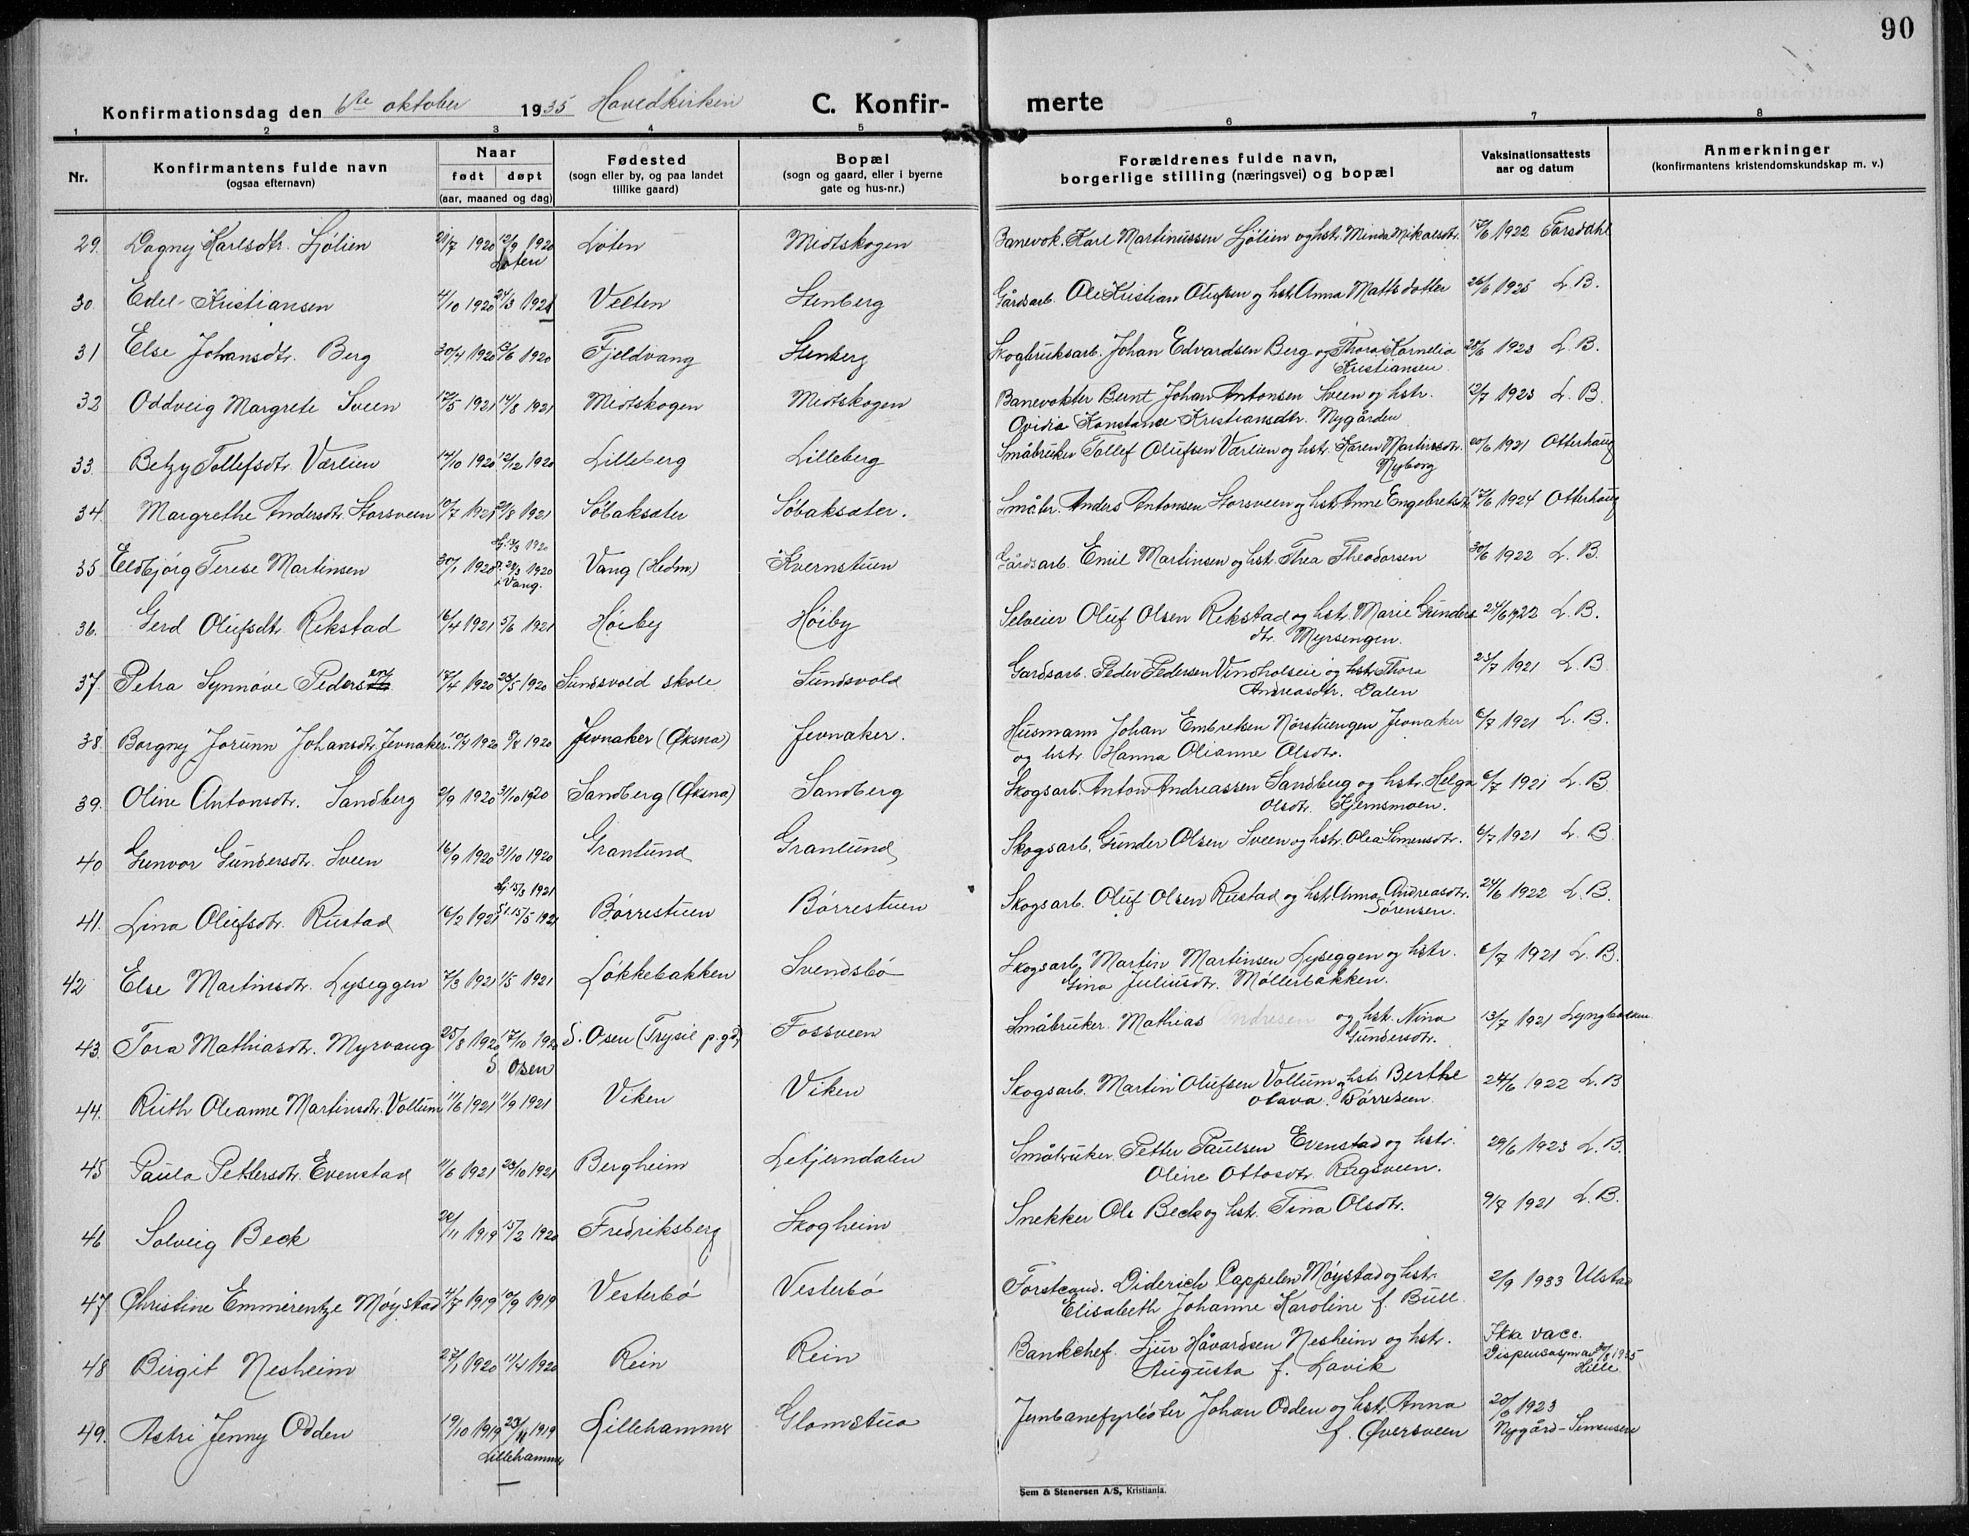 90
Konfirmationsdag den 6te oktober 1935 Hovedkirken C. Konfir- merte
1 2 3 4 5 6 7 8
Nr. Konfirmantens fulde navn (ogsaa efternavn) Naar født døpt (aar, maaned og dag) Fødested (sogn eller by, og paa landet tillike gaard) Bopæl (sogn og gaard, eller i byerne gate og hus-nr.) Forældrenes fulde navn, borgerlige stilling (næringsvei) og bopæl Vaksinationsattests aar og datum Anmerkninger (konfirmantens kristendomskundskap m. v.)
29. Dagny Karlsdtr. Sjølien 1920 12/9 1920 Løten Løten Midtskogen Banevok. Karl Martinussen Sjølien og hstr. Minda Mikalsdtr. 17/6 1922 Torsdahl
30. Edel Kristiansen 4/10 1920 24/3 1921 Velten Stenberg Gårdsarb. Ole Kristian Olufsen og hstr. Anna Mattsdotter 26/6 1925 L.B.
31 Else Johansdtr. Berg 30/4 1920 13/6 1920 Fjeldvang Stenberg Skogbruksarb. Johan Edvardsen Berg og Thora Kornelia 28/6 1923 L.B.
Kristiansen
32 Oddveig Margrete Sveen 17/5 1921 14/8 1921 Midtskogen Midtskogen Banevokter Bernt Johan Antonsen Sveen og hstr. 12/7 1923 L.B.
Ovidia Konstance Kristiansdtr. Nygården
33. Betzy Tollefsdtr. Værlien 14/10 1920 12/12 1920 Lilleberg Lilleberg Småbruker Tollef Olufsen Værlien og hstr. Karen Martinsdtr. 20/6 1921 Otterhaug
Nyborg
34. Margrethe Andersdtr. Storsveen 10/7 1921 21/8 1921 Søbaksæter Søbaksæter. Småbr. Anders Antonsen Storsveen og hstr. Anne Engebretsdtr. 17/6 1924 Otterhaug
35 Eldbjørg Terese Martinsen 30/1 1920 Hj. 13/3 1920 28/3 1920 i Vang. Vang (Hedm) Kvernstuen Gårdsarb. Emil Martinsen og hst. Thea Theodorsen 30/6 1922 L.B.
36. Gerd Olufsdtr. Rekstad 16/4 1921 5/6 1921 Høiby Høiby Selveier Oluf Olsen Rekstad og hstr. Marie Gunders 24/6 1922 L.B.
dtr. Myrsengen.
37. Petra Synnøve Pedersdtr. 17/4 1920 23/5 1920 Sundsvold skole Sundsvold Gardsarb. Peder Pedersen Vindholseie og hstr. Thora 23/7 1921 L.B.
Andreasdtr. Dalen
38. Borgny Jorunn Johansdtr. Jevnaker. 10/4 1920 8/8 1920 Jevnaker (Øksna) Jevnaker. Husmann Johan Embretsen Nørstuengen Jevnaker 6/7 1921 L.B.
og hstr. Hanna Olianne Olsdtr.
39. Oline Antonsdtr. Sandberg 2/9 1920 31/10 1920 Sandberg (Øksna) Sandberg Skogsarb. Anton Andreassen Sandberg og hstr. Helga 6/7 1921 L.B.
Olsdtr. Kjernsmoen.
40 Gunvor Gundersdtr. Sveen 16/9 1920 31/10 1920 Granlund Granlund Skogsarb. Gunder Olsen Sveen og hstr. Olea Simensdtr. 6/7 1921 L.B.
41. Lina Olufsdtr. Rustad 16/2 1921 Hj 15/3 1921 St. 15/5 1921 Børrestuen Børrestuen Skogsarb. Oluf Olsen Rustad og hst. Anna Andreasdtr. 24/6 1922 L.B.
Sørensen.
42 Else Martinsdtr. Lyseggen 7/3 1921 1/5 1921 Løkkebakken Svendsbø Skogsarb. Martin Martinsen Lyseggen og hstr. 6/7 1921 L.B.
Gina Juliusdtr. Møllerbakken.
43. Tora Mathiasdtr. Myrvang 25/8 1920 17/10 1920 S. Osen S. Osen (Trysil p.gd) Fossveen Småbruker. Mathias Andresen og hst. Nina 13/7 1921
Gundersdtr.
44. Ruth Oleanne Martinsdtr. Vollum 11/6 1921 11/9 1921 Viken Viken Skogsarb. Martin Olufsen Vollum og hst. Berthe 24/6 1922 L.B
Olava Børresen.
45 Paula Pettersdtr. Evenstad 11/6 1921 23/10 1921 Bergheim Letjerndalen Småbruker. Petter Paulsen Evenstad og hstr. 29/6 1923 L.B.
Oline Ottosdtr. Rugsveen.
46 Solveig Beck 20/11 1919 15/2 1920 Fredriksberg Skogheim Snekker Ole Beck og hst. Tina Olsdtr. 9/7 1921 L.B.
47 Christine Emmerentze Møystad 4/7 1919 7/9 1919 Vesterbø Vesterbø Forstcand. Diderich Cappelen Møystad og hstr. 2/9 1933 Ulstad
Elisabeth Johanne Karoline f. Bull.
48 Birgit Nesheim 27/1 1920 11/4 1920 Rein Rein Bankchef. Sjur Håvardsen Nesheim og hstr. Ikke vacc.
Augusta f. Lavik Dispensasjon av 1935 Hille
49. Astri Jenny Odden 19/10 1919 23/11 1919 Lillehammer Lillehammer Glomstua Jernbanefyrbøter Johan Odden og hst. Anna 20/6 1923
f. Øversveen Nygård-Simensen
Sem & Stenersen A/S, Kristiania.